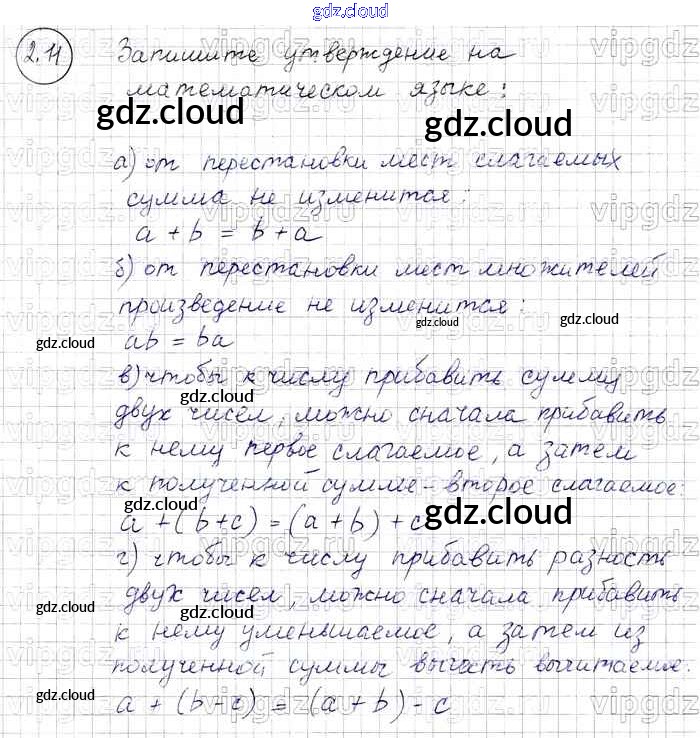 gdz.cloud
2.11 Запишите утверждение на
математическом языке:
gdz.cloud
gdz.cloud
а) от перестановки мест слагаемых
сумма не изменится:
a + b = b + a
б) от перестановки мест множителей
произведение не изменится:
gdz.cloud
gdz.cloud
ab = ba
gdz.cloud
в) чтобы к числу прибавить сумму
двух чисел, можно сначала прибавить
к нему первое слагаемое, а затем
к полученной сумме - второе слагаемое:
gdz.cloud
gdz.cloud
a + (b+c) = (a + b) + c
г) чтобы к числу прибавить разность
двух чисел, можно сначала прибавить
gdz.cloud
gdz.cloud
gdz.cloud
к нему уменьшаемое, а затем из
полученной суммы вычесть вычитаемое:
gdz.cloud
gdz.cloud
a + (b-c) = (a + b) - c